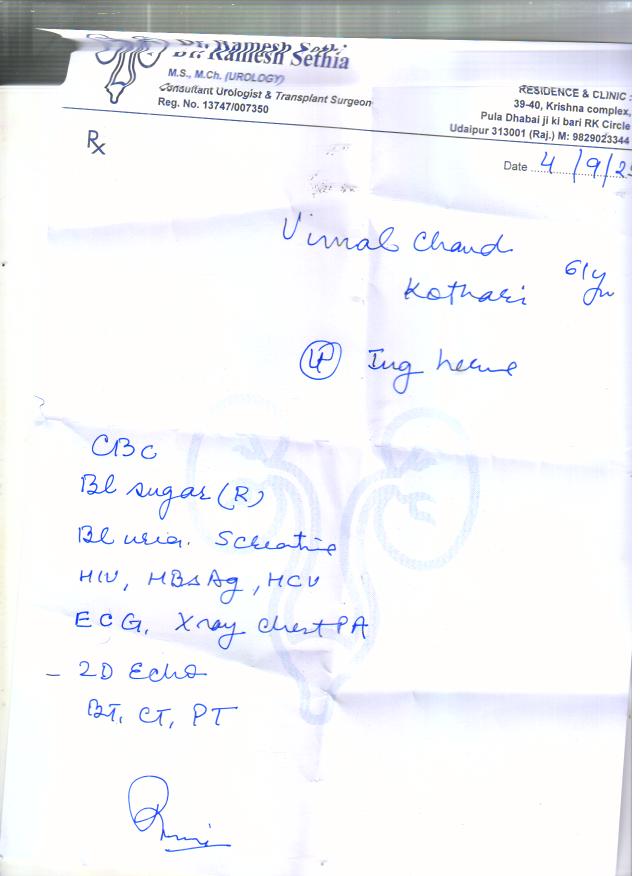 Dr. Ramesh Sethia
M.S., M.Ch. (UROLOGY)
Consultant Urologist & Transplant Surgeon
Reg. No. 13747/007350
RESIDENCE & CLINIC :
39-40, Krishna complex,
Pula Dhabai ji ki bari RK Circle
Udaipur 313001 (Raj.) M: 9829023344
Rx
Date 4/9/25
Vimal Chand
Kothari 61y
Ing hernia
CBC
Bl sugar (R)
Bl urea. S creatine
HIV, HBsAg, HCV
ECG, Xray chest PA
- 2D Echo
BT, CT, PT